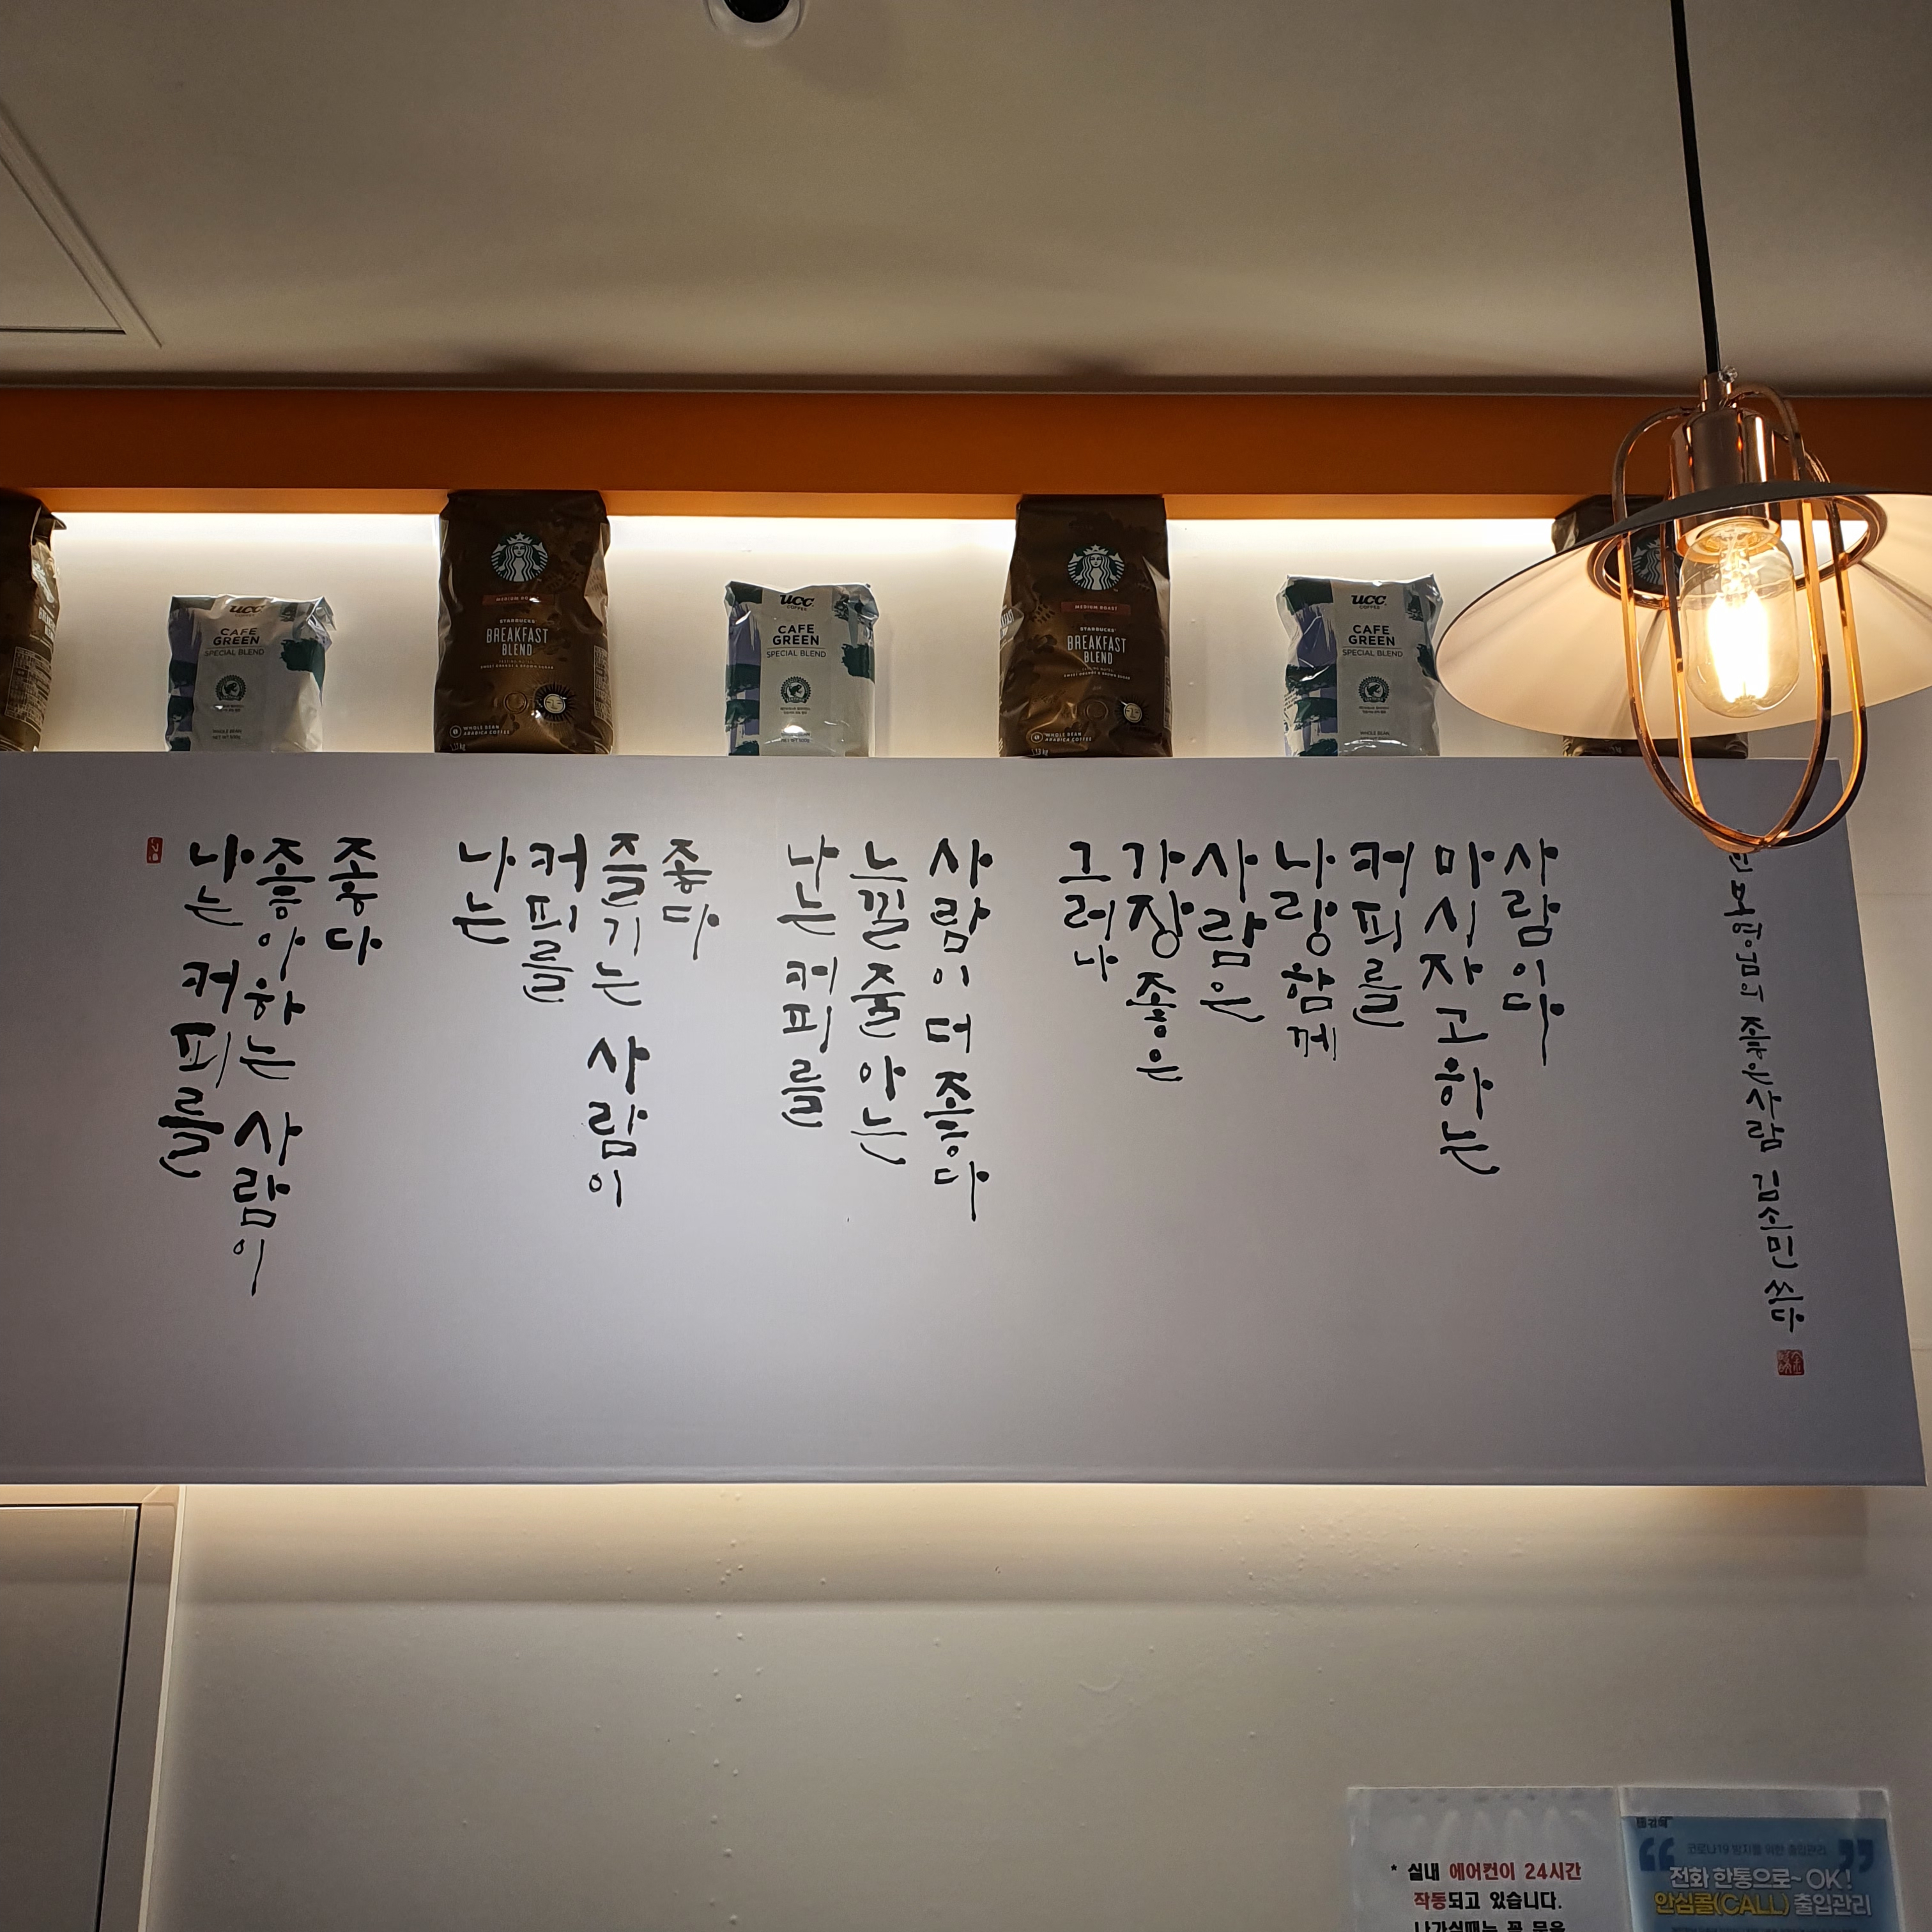 ucc
COFFEE
CAFE
GREEN
SPECIAL BLEND
WHOLE BEAN
MEDIUM ROAST
STARBUCKS
BREAKFAST
BLEND
WHOLE BEAN
ARABICA COFFEE
ucc
COFFEE
CAFE
GREEN
SPECIAL BLEND
MEDIUM ROAST
STARBUCKS
BREAKFAST
BLEND
WHOLE BEAN
ARABICA COFFEE
ucc
COFFEE
CAFE
GREEN
SPECIAL BLEND
WHOLE BEAN
나는 커피를
좋아하는 사람이
좋다
나는
커피를
즐기는 사람이
좋다
난 커피를
느낄 줄 아는
사람이 더 좋다
그러나
가장 좋은
사람은
나랑 함께
커피를
마시자고 하는
사람이다
님의 좋은사람 김소민 쓰다
* 실내 에어컨이 24시간
작동되고 있습니다.
나가실때는 꼭 문을
코로나19 방지를 위한 출입관리
전화 한통으로~ OK!
안심콜(CALL) 출입관리